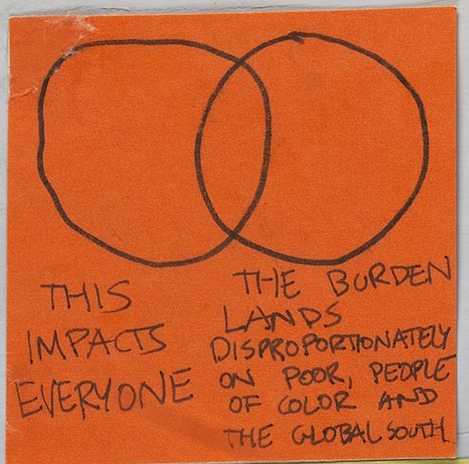 THIS
IMPACTS
EVERYONE
THE BURDEN
LANDS
DISPROPORTIONATELY
ON POOR, PEOPLE
OF COLOR AND
THE GLOBAL SOUTH.